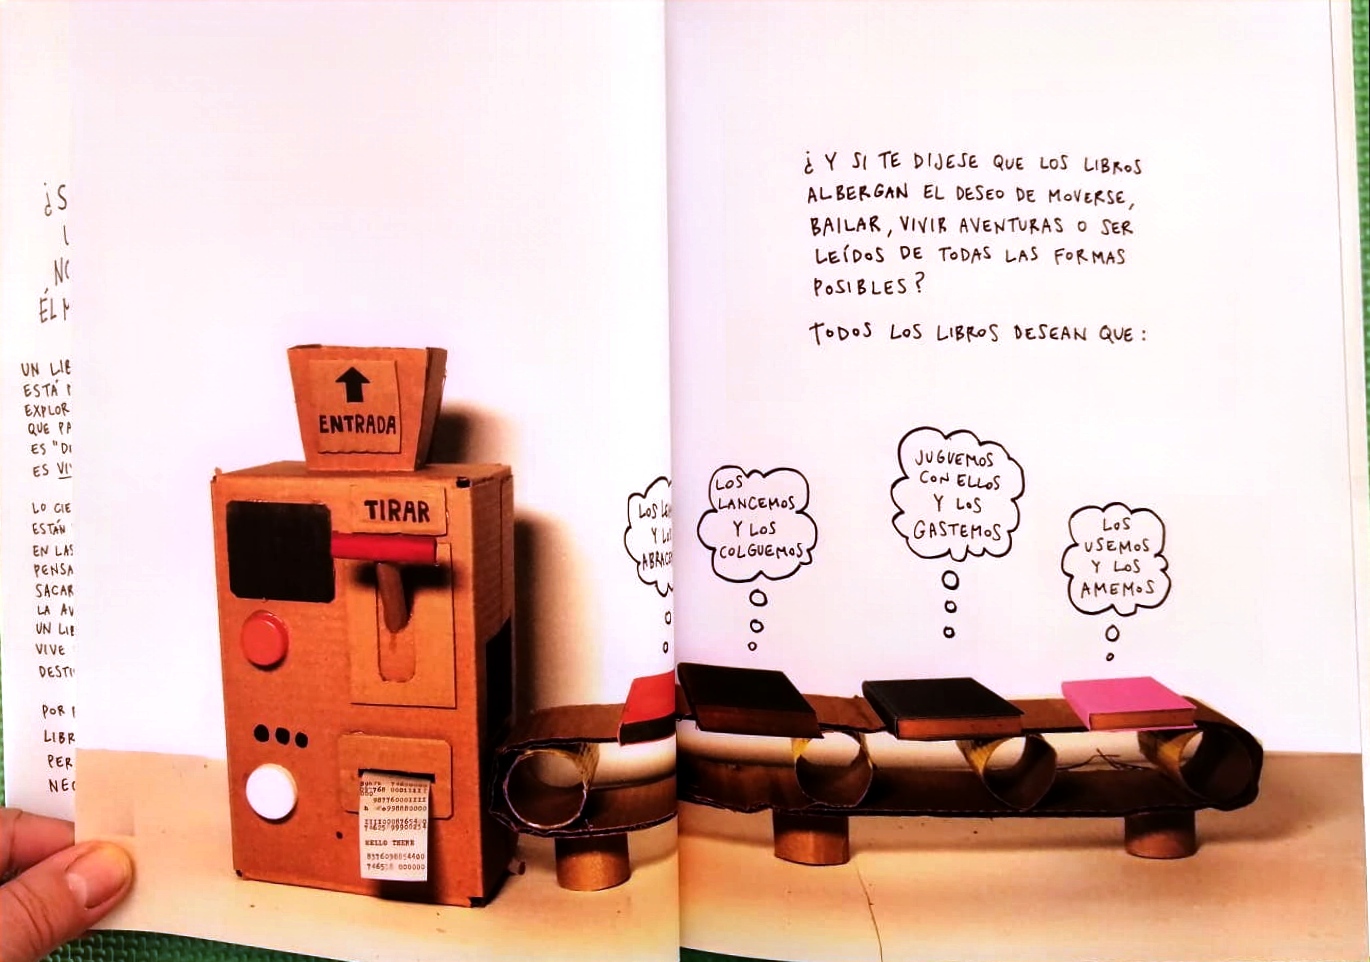 ¿S
NO
ÉL
UN LIB
ESTÁ
EXPLOR
QUE PA
ES "DI
ES VI
LO CIE
ESTÁN
EN LAS
PENSA
SACAR
LA AV
UN LIB
VIVE
DESTI
POR
LIBR
PER
NEC
ENTRADA
TIRAR
987760001111
74625799900254
HELLO THERE
8376098854400
¿Y SI TE DIJESE QUE LOS LIBROS
ALBERGAN EL DESEO DE MOVERSE,
BAILAR, VIVIR AVENTURAS O SER
LEÍDOS DE TODAS LAS FORMAS
POSIBLES?
TODOS LOS LIBROS DESEAN QUE:
LOS
Y LOS
ABRACE
LOS
LANCEMOS
Y LOS
COLGUEMOS
JUGUEMOS
CON ELLOS
Y LOS
GASTEMOS
LOS
USEMOS
Y LOS
AMEMOS